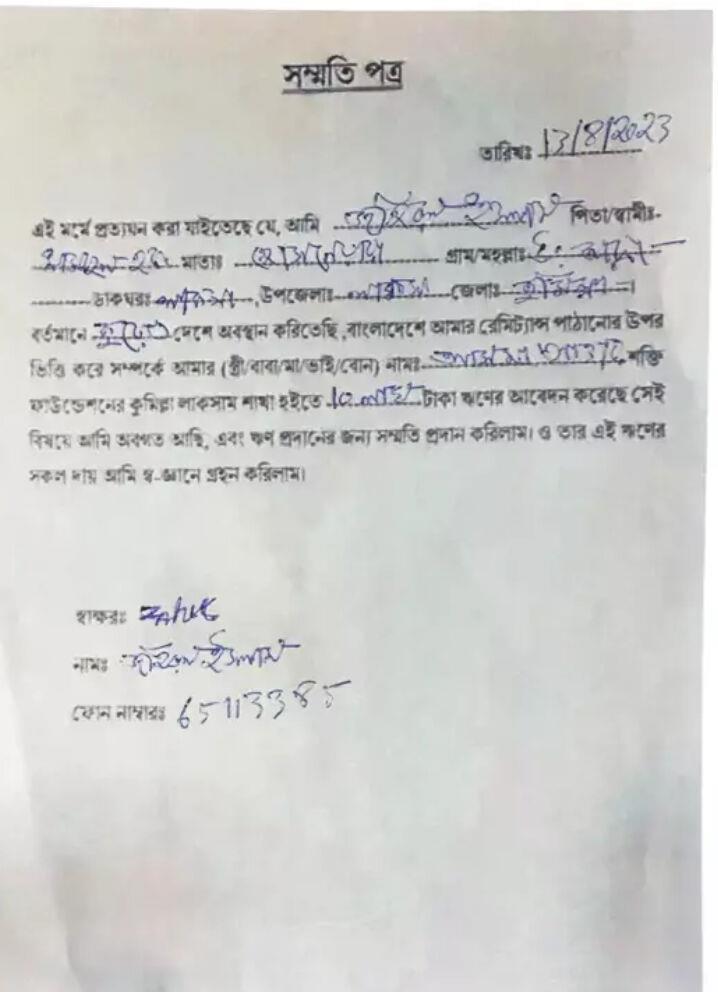 সম্মতি পত্র
তারিখঃ 13/8/2023
এই মর্মে প্রত্যয়ন করা যাইতেছে যে, আমি ইসলাম পিতা/স্বামীঃ-
মাতাঃ গ্রাম/মহল্লাঃ
ডাকঘরঃ লাকসাম, উপজেলাঃ লাকসাম জেলাঃ কুমিল্লা ।
বর্তমানে কুয়েত দেশে অবস্থান করিতেছি, বাংলাদেশে আমার রেমিট্যান্স পাঠানোর উপর
ভিত্তি করে সম্পর্কে আমার (স্ত্রী/বাবা/মা/ভাই/বোন) নামঃ শক্তি
ফাউন্ডেশনের কুমিল্লা লাকসাম শাখা হইতে টাকা ঋণের আবেদন করেছে সেই
বিষয়ে আমি অবগত আছি, এবং ঋণ প্রদানের জন্য সম্মতি প্রদান করিলাম। ও তার এই ঋণের
সকল দায় আমি স্ব-জ্ঞানে গ্রহন করিলাম।
স্বাক্ষরঃ
নামঃ ইসলাম
ফোন নাম্বারঃ 65113385